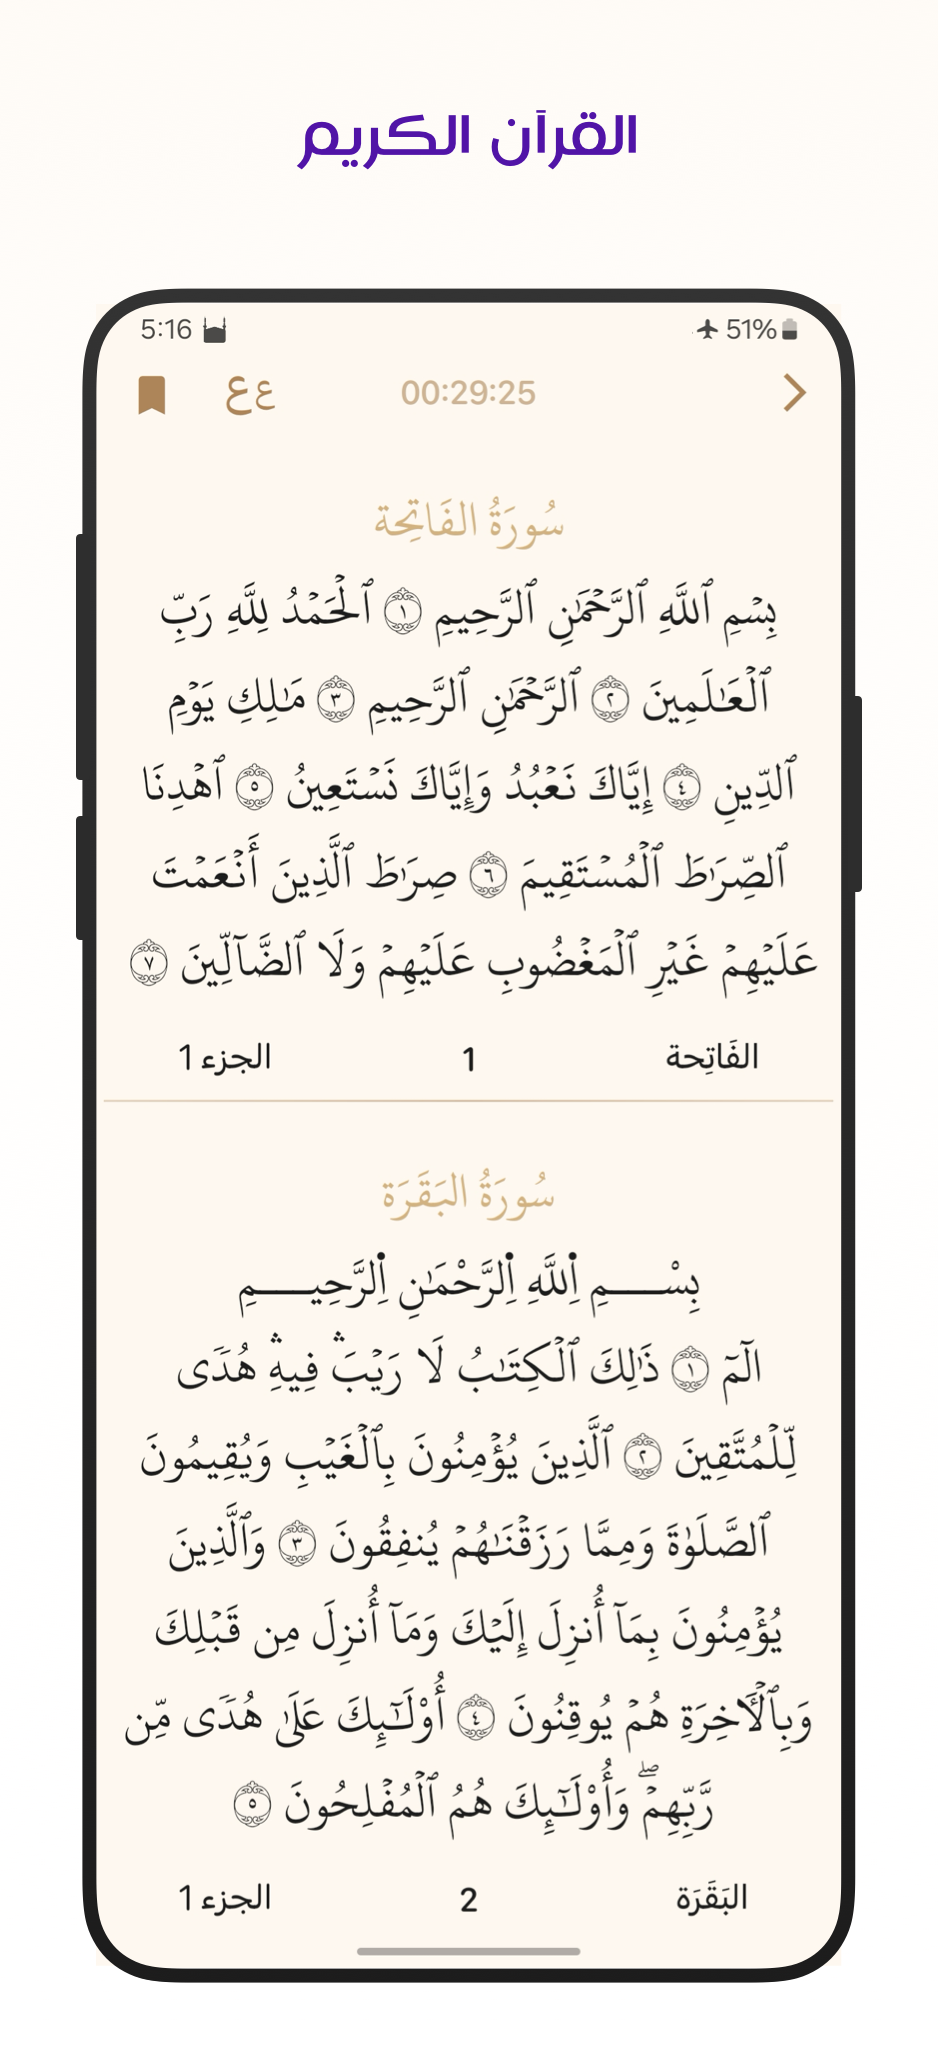 القرآن الكريم
5:16 51%
عع 00:29:25
سُورَةُ الفَاتِحة
بِسۡمِ ٱللَّهِ ٱلرَّحۡمَٰنِ ٱلرَّحِيمِ ١ ٱلۡحَمۡدُ لِلَّهِ رَبِّ
ٱلۡعَٰلَمِينَ ٢ ٱلرَّحۡمَٰنِ ٱلرَّحِيمِ ٣ مَٰلِكِ يَوۡمِ
ٱلدِّينِ ٤ إِيَّاكَ نَعۡبُدُ وَإِيَّاكَ نَسۡتَعِينُ ٥ ٱهۡدِنَا
ٱلصِّرَٰطَ ٱلۡمُسۡتَقِيمَ ٦ صِرَٰطَ ٱلَّذِينَ أَنۡعَمۡتَ
عَلَيۡهِمۡ غَيۡرِ ٱلۡمَغۡضُوبِ عَلَيۡهِمۡ وَلَا ٱلضَّآلِّينَ ٧
الفَاتِحة 1 الجزء 1
سُورَةُ البَقَرَة
بِسْــــمِ اِ۬للَّهِ اِ۬لرَّحْمَٰنِ اِ۬لرَّحِيــــمِ
الٓمٓ ١ ذَٰلِكَ ٱلۡكِتَٰبُ لَا رَيۡبَۛ فِيهِۛ هُدٗى
لِّلۡمُتَّقِينَ ٢ ٱلَّذِينَ يُؤۡمِنُونَ بِٱلۡغَيۡبِ وَيُقِيمُونَ
ٱلصَّلَوٰةَ وَمِمَّا رَزَقۡنَٰهُمۡ يُنفِقُونَ ٣ وَٱلَّذِينَ
يُؤۡمِنُونَ بِمَآ أُنزِلَ إِلَيۡكَ وَمَآ أُنزِلَ مِن قَبۡلِكَ
وَبِٱلۡأٓخِرَةِ هُمۡ يُوقِنُونَ ٤ أُوْلَٰٓئِكَ عَلَىٰ هُدٗى مِّن
رَّبِّهِمۡۖ وَأُوْلَٰٓئِكَ هُمُ ٱلۡمُفۡلِحُونَ ٥
البَقَرَة 2 الجزء 1